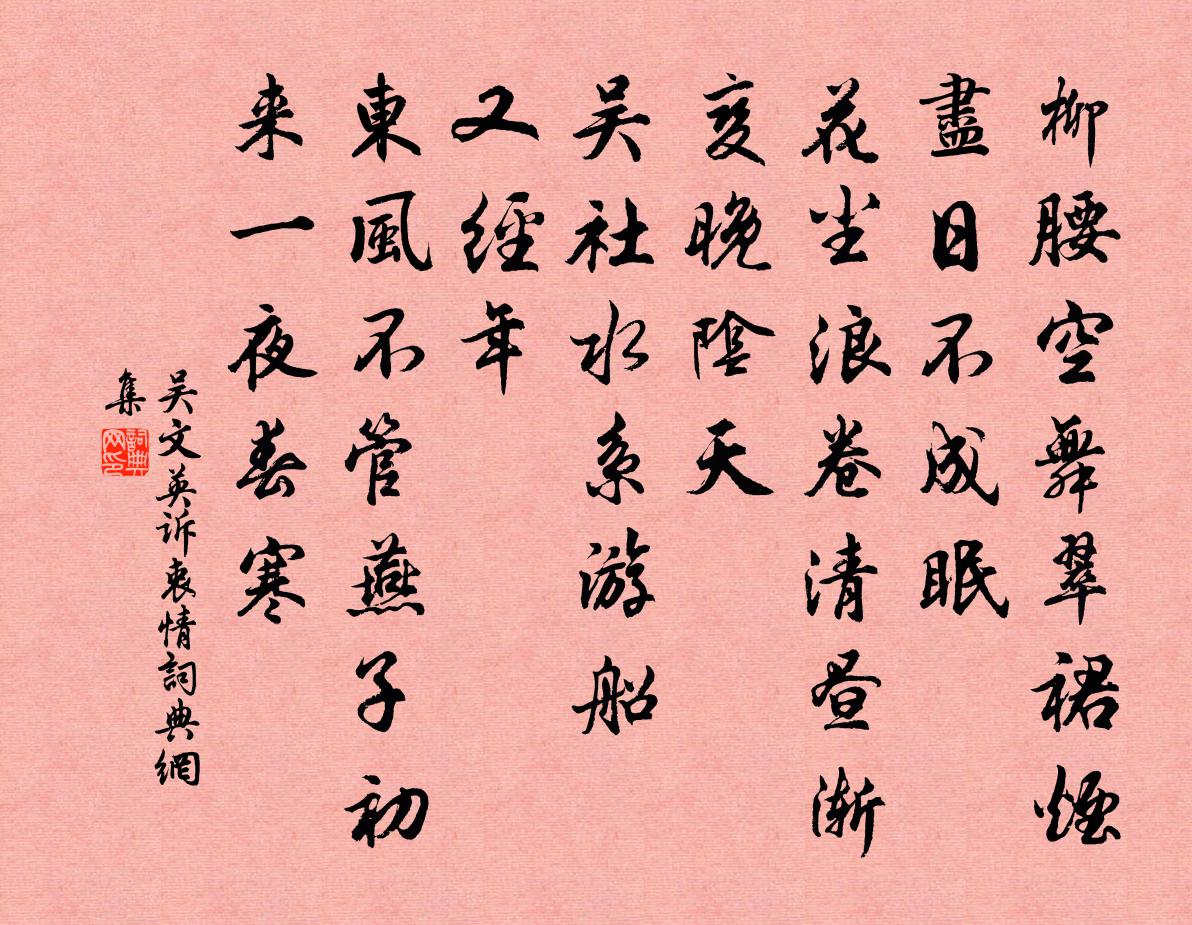 柳腰空舞翠裙煙
盡日不成眠
花尘浪卷清昼渐
变晚陰天
吴社水系游船
又經年
東風不管燕子初
来一夜春寒
吴文英诉衷情詞典網
集
詞典网印